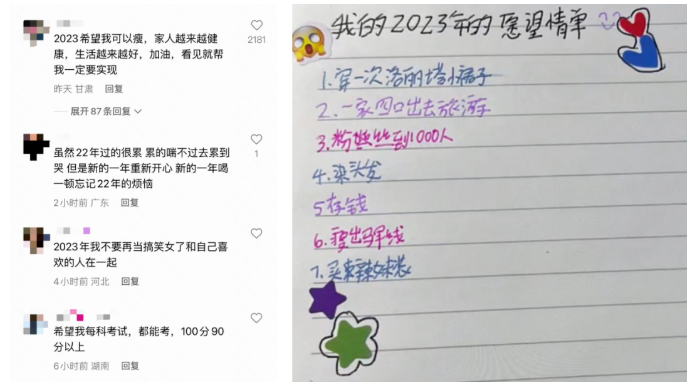 2023希望我可以瘦，家人越来越健
康，生活越来越好，加油，看见就帮
我一定要实现
2181
昨天 甘肃 回复
展开87条回复
虽然22年过的很累 累的喘不过去累到
哭 但是新的一年重新开心 新的一年喝
一顿忘记22年的烦恼
1
2小时前 广东 回复
2023年我不要再当搞笑女了和自己喜
欢的人在一起
4小时前 河北 回复
希望我每科考试，都能考，100分90
分以上
6小时前 湖南 回复
我的2023年的愿望情单
1.穿一次洛丽塔小裙子
2.一家四口出去旅游
3.粉丝到1000人
4.染头发
5存钱
6.瘦出马甲线
7.买来辣妹装